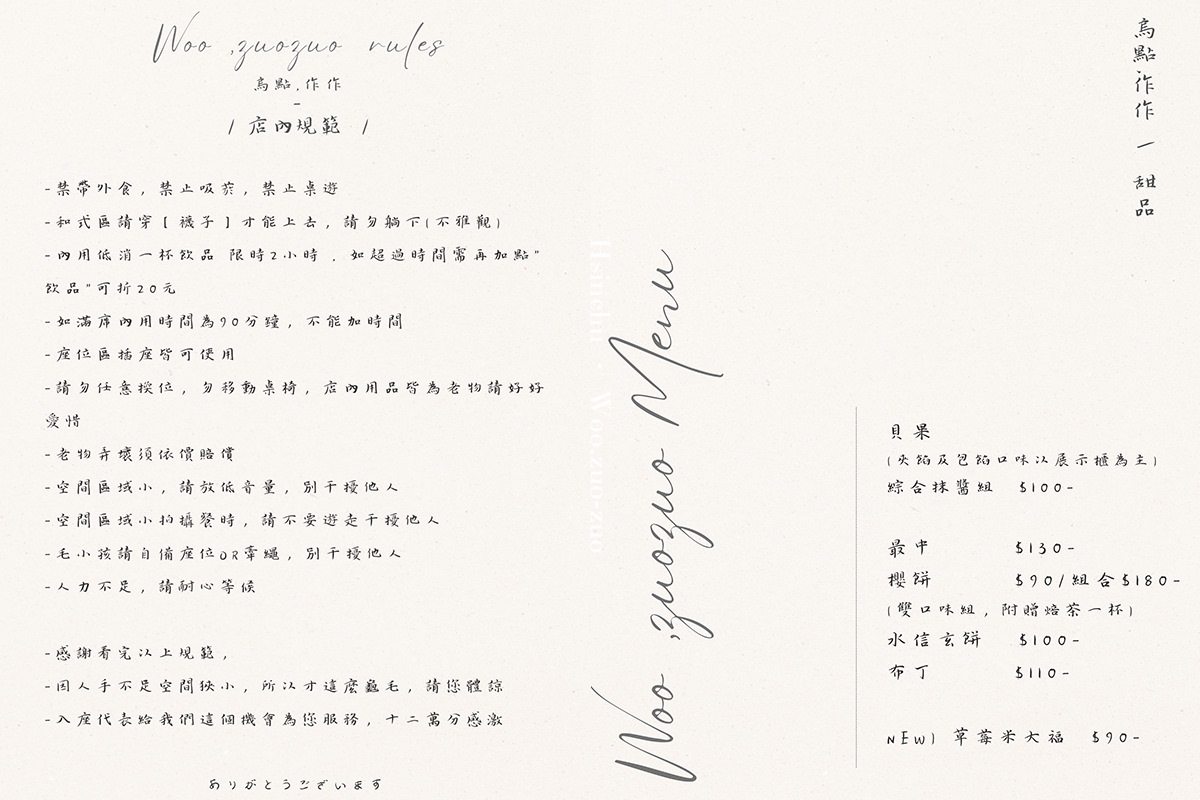 Woo ,zuozuo rules
烏點.作作
-
/ 店內規範 /
-禁帶外食，禁止吸菸，禁止桌遊
-和式區請穿[襪子]才能上去，請勿躺下(不雅觀)
-內用低消一杯飲品 限時2小時．如超過時間需再加點"
飲品"可折20元
-如滿席內用時間為90分鐘，不能加時間
-座位區插座皆可使用
-請勿任意換位，勿移動桌椅，店內用品皆為老物請好好
愛惜
-老物弄壞須依價賠償
-空間區域小，請放低音量，別干擾他人
-空間區域小拍攝餐時，請不要遊走干擾他人
-毛小孩請自備座位OR牽繩，別干擾他人
-人力不足，請耐心等候
-感謝看完以上規範，
-因人手不足空間狹小，所以才這麼龜毛，請您體諒
-入座代表給我們這個機會為您服務，十二萬分感激
ありがとうございます
Woo ,zuozuo Menu
Hsinchu · Woo.zuo-zuo
烏點作作 一 甜品
貝果
(夾餡及包餡口味以展示櫃為主)
綜合抹醬組 $100-
最中 $130-
櫻餅 $90/組合$180-
(雙口味組，附贈焙茶一杯)
水信玄餅 $100-
布丁 $110-
NEW) 草莓米大福 $90-